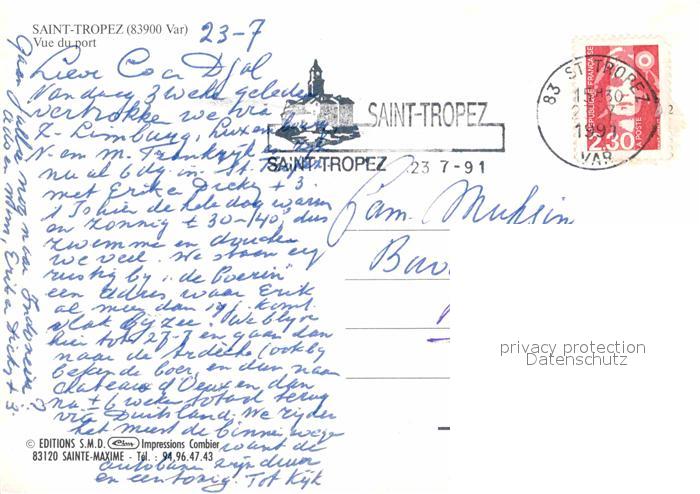 SAINT-TROPEZ (83900 Var)
Vue du port
23-7
Lieve Co en Djal
Vandaag 3 weken geleden
vertrokken we via
Z-Limburg, Luxemburg
N en m. Frankrijk en
nu al 6 dg. in St. Tropez
met Erik e Dicky + 3.
't Is hier de hele dag warm
en zonnig ± 30-/40, dus
zwemme en douchen
we veel. We staan erg
rustig bij de Boerin
een adres waar Erik
al meer dan 19 j. komt
vlak bij zee. We blijven
hier tot 27-7 en gaan dan
naar de Ardèche (ook bij
bekende boer, en dan naar
chateau d'Oeux en dan
na ± 6 weken totaal terug
via Duitsland. We rijden
het meest de binnenwegen
want de
autobanen zijn duur
en eentonig. Tot Kijk
Gaan jullie nog naar Indonesia?
Ada en Wim, Erik e Dicky + 3
SAINT-TROPEZ
SAINT TROPEZ 23 7-91
83 ST TROPEZ
15H30
1991
VAR
RÉPUBLIQUE FRANÇAISE
2,30
LA POSTE
Fam. Muhsin
privacy protection
Datenschutz
© EDITIONS S.M.D. Cim Impressions Combier
83120 SAINTE-MAXIME - Tél. : 94.96.47.43